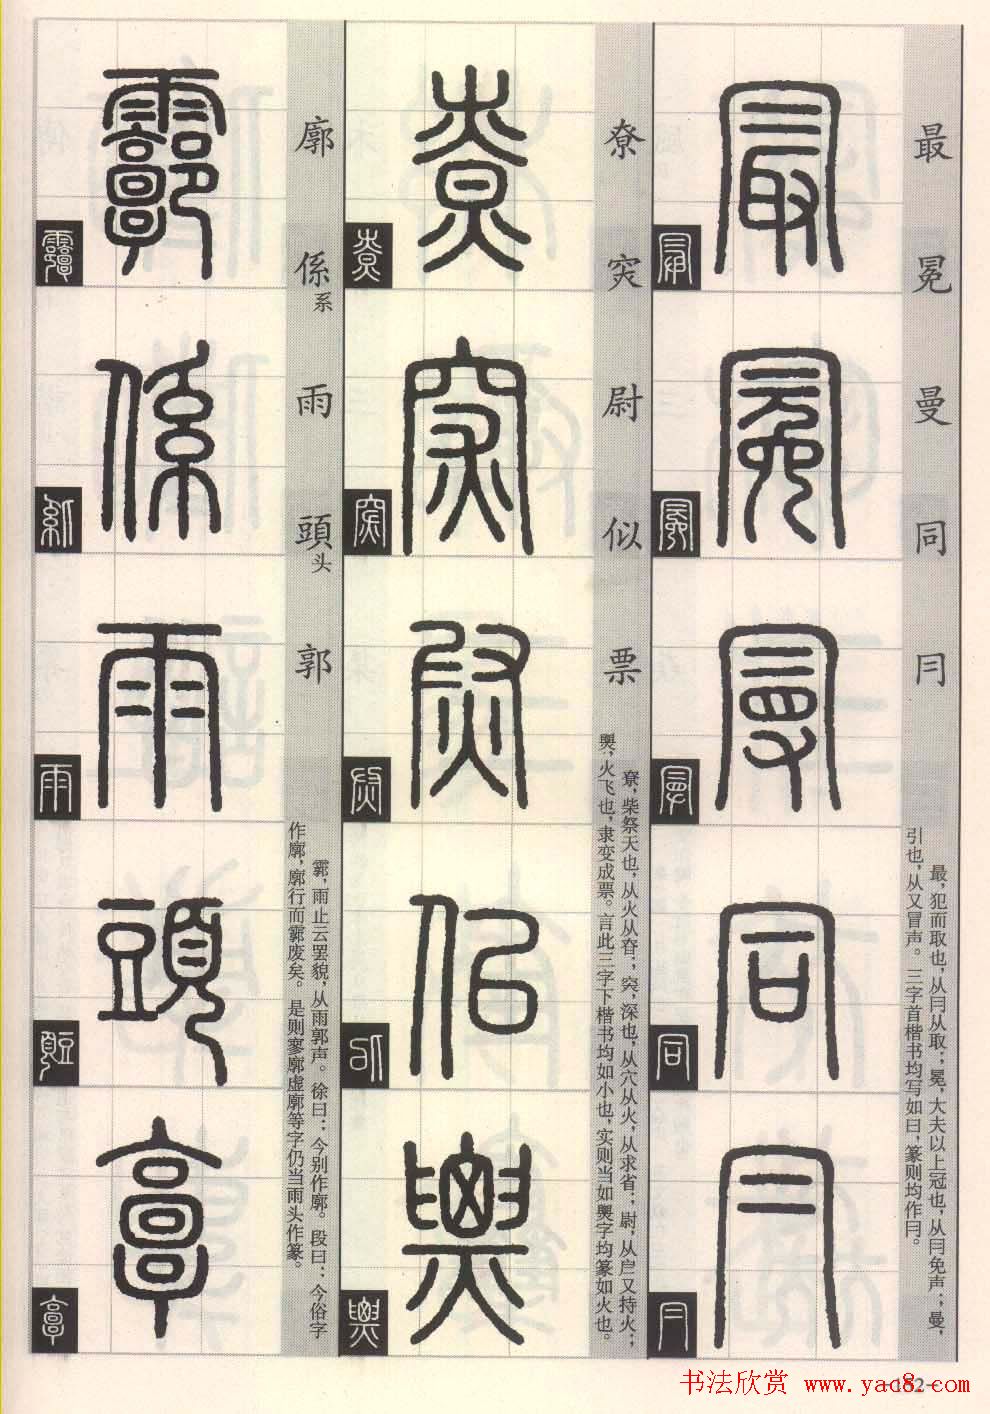 最
冕
曼
同
冃
最，犯而取也，从冃从取；冕，大夫以上冠也，从冃免声；曼，
引也，从又冒声。三字首楷书均写如曰，篆则均作冃。
尞
突
尉
似
票
尞，柴祭天也，从火从昚；突，深也，从穴从火，从求省；尉，从𡰥又持火；
㷠，火飞也，隶变成票。言此三字下楷书均如小也，实则当如㷠字均篆如火也。
廓
係系
雨
頭头
郭
霩，雨止云罢貌，从雨郭声。徐曰：今别作廓。段曰：今俗字
作廓，廓行而霩废矣。是则寥廓虚廓等字仍当雨头作篆。
书法欣赏 www.yac8.com